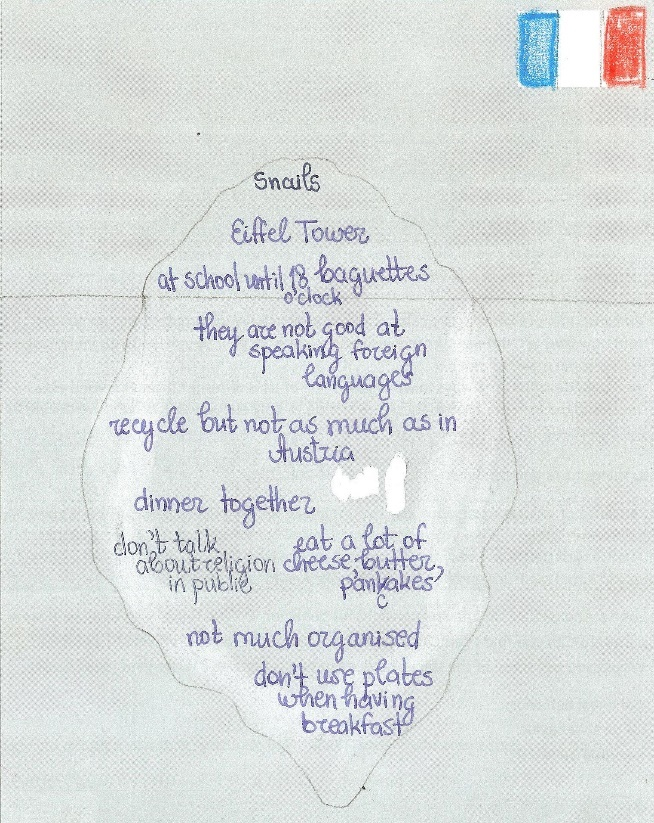 Snails
Eiffel Tower
at school until 18 baguettes
o'clock
they are not good at
speaking foreign
languages
recycle but not as much as in
Austria
dinner together
don't talk eat a lot of
about religion cheese, butter,
in public pankakes
c
not much organised
don't use plates
when having
breakfast